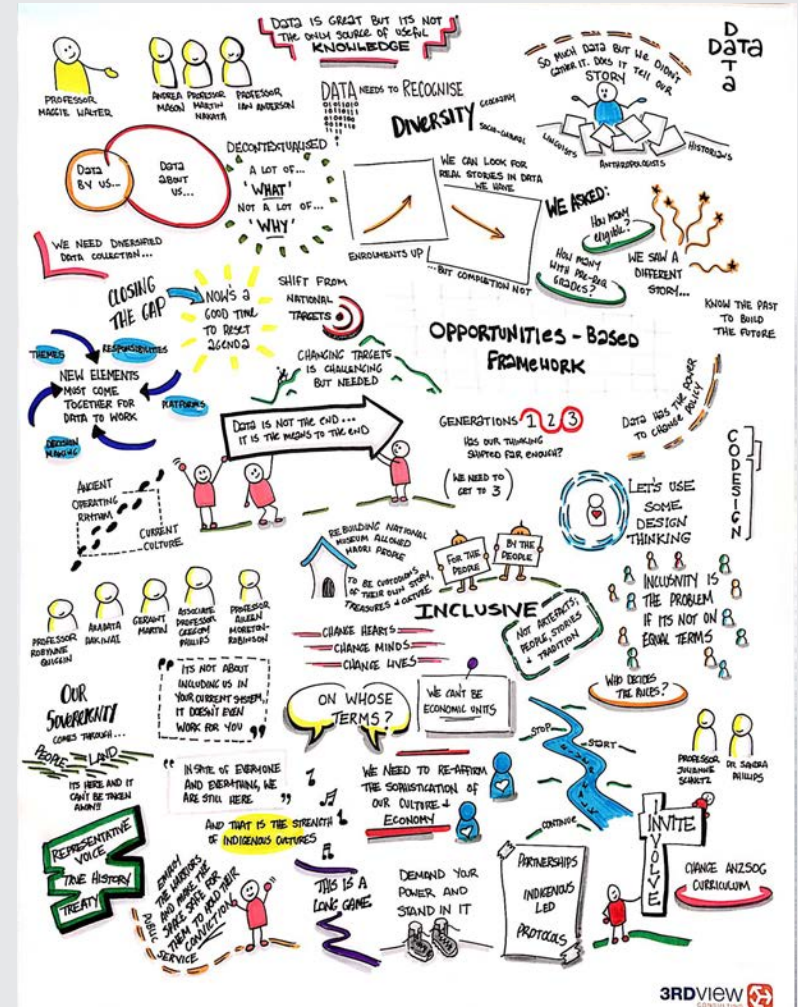 DATA IS GREAT BUT ITS NOT
THE ONLY SOURCE OF USEFUL
KNOWLEDGE
DATA
DATA
PROFESSOR
MAGGIE WALTER
ANDREA
MASON
PROFESSOR
MARTIN
NAKATA
PROFESSOR
IAN ANDERSON
DATA NEEDS TO RECOGNISE
DIVERSITY
GEOGRAPHY
SOCIO-CULTURAL
SO MUCH DATA BUT WE DIDN'T
GATHER IT. DOES IT TELL OUR
STORY
LINGUISTS
ANTHROPOLOGISTS
HISTORIANS
DATA
BY US...
DATA
ABOUT
US...
DECONTEXTUALISED
A LOT OF...
'WHAT'
NOT A LOT OF...
'WHY'
WE CAN LOOK FOR
REAL STORIES IN DATA
WE HAVE
ENROLMENTS UP
...BUT COMPLETION NOT
WE ASKED:
HOW MANY
ELIGIBLE?
HOW MANY
WITH PRE-REQ
GRADES?
WE SAW A
DIFFERENT
STORY...
KNOW THE PAST
TO BUILD
THE FUTURE
WE NEED DIVERSIFIED
DATA COLLECTION...
CLOSING
THE GAP
NOW'S A
GOOD TIME
TO RESET
AGENDA
SHIFT FROM
NATIONAL
TARGETS
CHANGING TARGETS
IS CHALLENGING
BUT NEEDED
OPPORTUNITIES-BASED
FRAMEWORK
THEMES
RESPONSIBILITIES
NEW ELEMENTS
MUST COME
TOGETHER FOR
DATA TO WORK
PLATFORMS
DECISION
MAKING
DATA IS NOT THE END...
IT IS THE MEANS TO THE END
GENERATIONS 1 2 3
HAS OUR THINKING
SHIFTED FAR ENOUGH?
(WE NEED TO
GET TO 3)
DATA HAS THE POWER
TO CHANGE POLICY
CODESIGN
LET'S USE
SOME
DESIGN
THINKING
ANCIENT
OPERATING
RHYTHM
CURRENT
CULTURE
REBUILDING NATIONAL
MUSEUM ALLOWED
MAORI PEOPLE
TO BE CUSTODIANS
OF THEIR OWN STORY,
TREASURES & CULTURE
FOR THE
PEOPLE
BY THE
PEOPLE
INCLUSIVE
NOT ARTEFACTS;
PEOPLE, STORIES
& TRADITION
INCLUSIVITY IS
THE PROBLEM
IF ITS NOT ON
EQUAL TERMS
WHO DECIDES
THE RULES?
PROFESSOR
ROBYNNE
QUIGGIN
ARAPATA
HAKIWAI
GERAINT
MARTIN
ASSOCIATE
PROFESSOR
GREGORY
PHILLIPS
PROFESSOR
AILEEN
MORETON-
ROBINSON
CHANGE HEARTS
CHANGE MINDS
CHANGE LIVES
OUR
SOVEREIGNTY
COMES THROUGH...
PEOPLE LAND
ITS HERE AND IT
CAN'T BE TAKEN
AWAY!!
" ITS NOT ABOUT
INCLUDING US IN
YOUR CURRENT SYSTEM,
IT DOESN'T EVEN
WORK FOR YOU "
ON WHOSE
TERMS?
WE CAN'T BE
ECONOMIC UNITS
STOP
START
CONTINUE
PROFESSOR
JULIANNE
SCHULTZ
DR SANDRA
PHILLIPS
" IN SPITE OF EVERYONE
AND EVERYTHING, WE
ARE STILL HERE "
AND THAT IS THE STRENGTH
OF INDIGENOUS CULTURES
WE NEED TO RE-AFFIRM
THE SOPHISTICATION OF
OUR CULTURE &
ECONOMY
REPRESENTATIVE
VOICE
TRUE HISTORY
TREATY
EMPLOY
THE WARRIORS
AND MAKE THE
SPACE SAFE FOR
THEM TO HOLD THEIR
CONVICTION
PUBLIC
SERVICE
THIS IS A
LONG GAME
DEMAND YOUR
POWER AND
STAND IN IT
PARTNERSHIPS
INDIGENOUS
LED
PROTOCOLS
INVITE
INVOLVE
CHANGE ANZSOG
CURRICULUM
3RDVIEW
CONSULTING